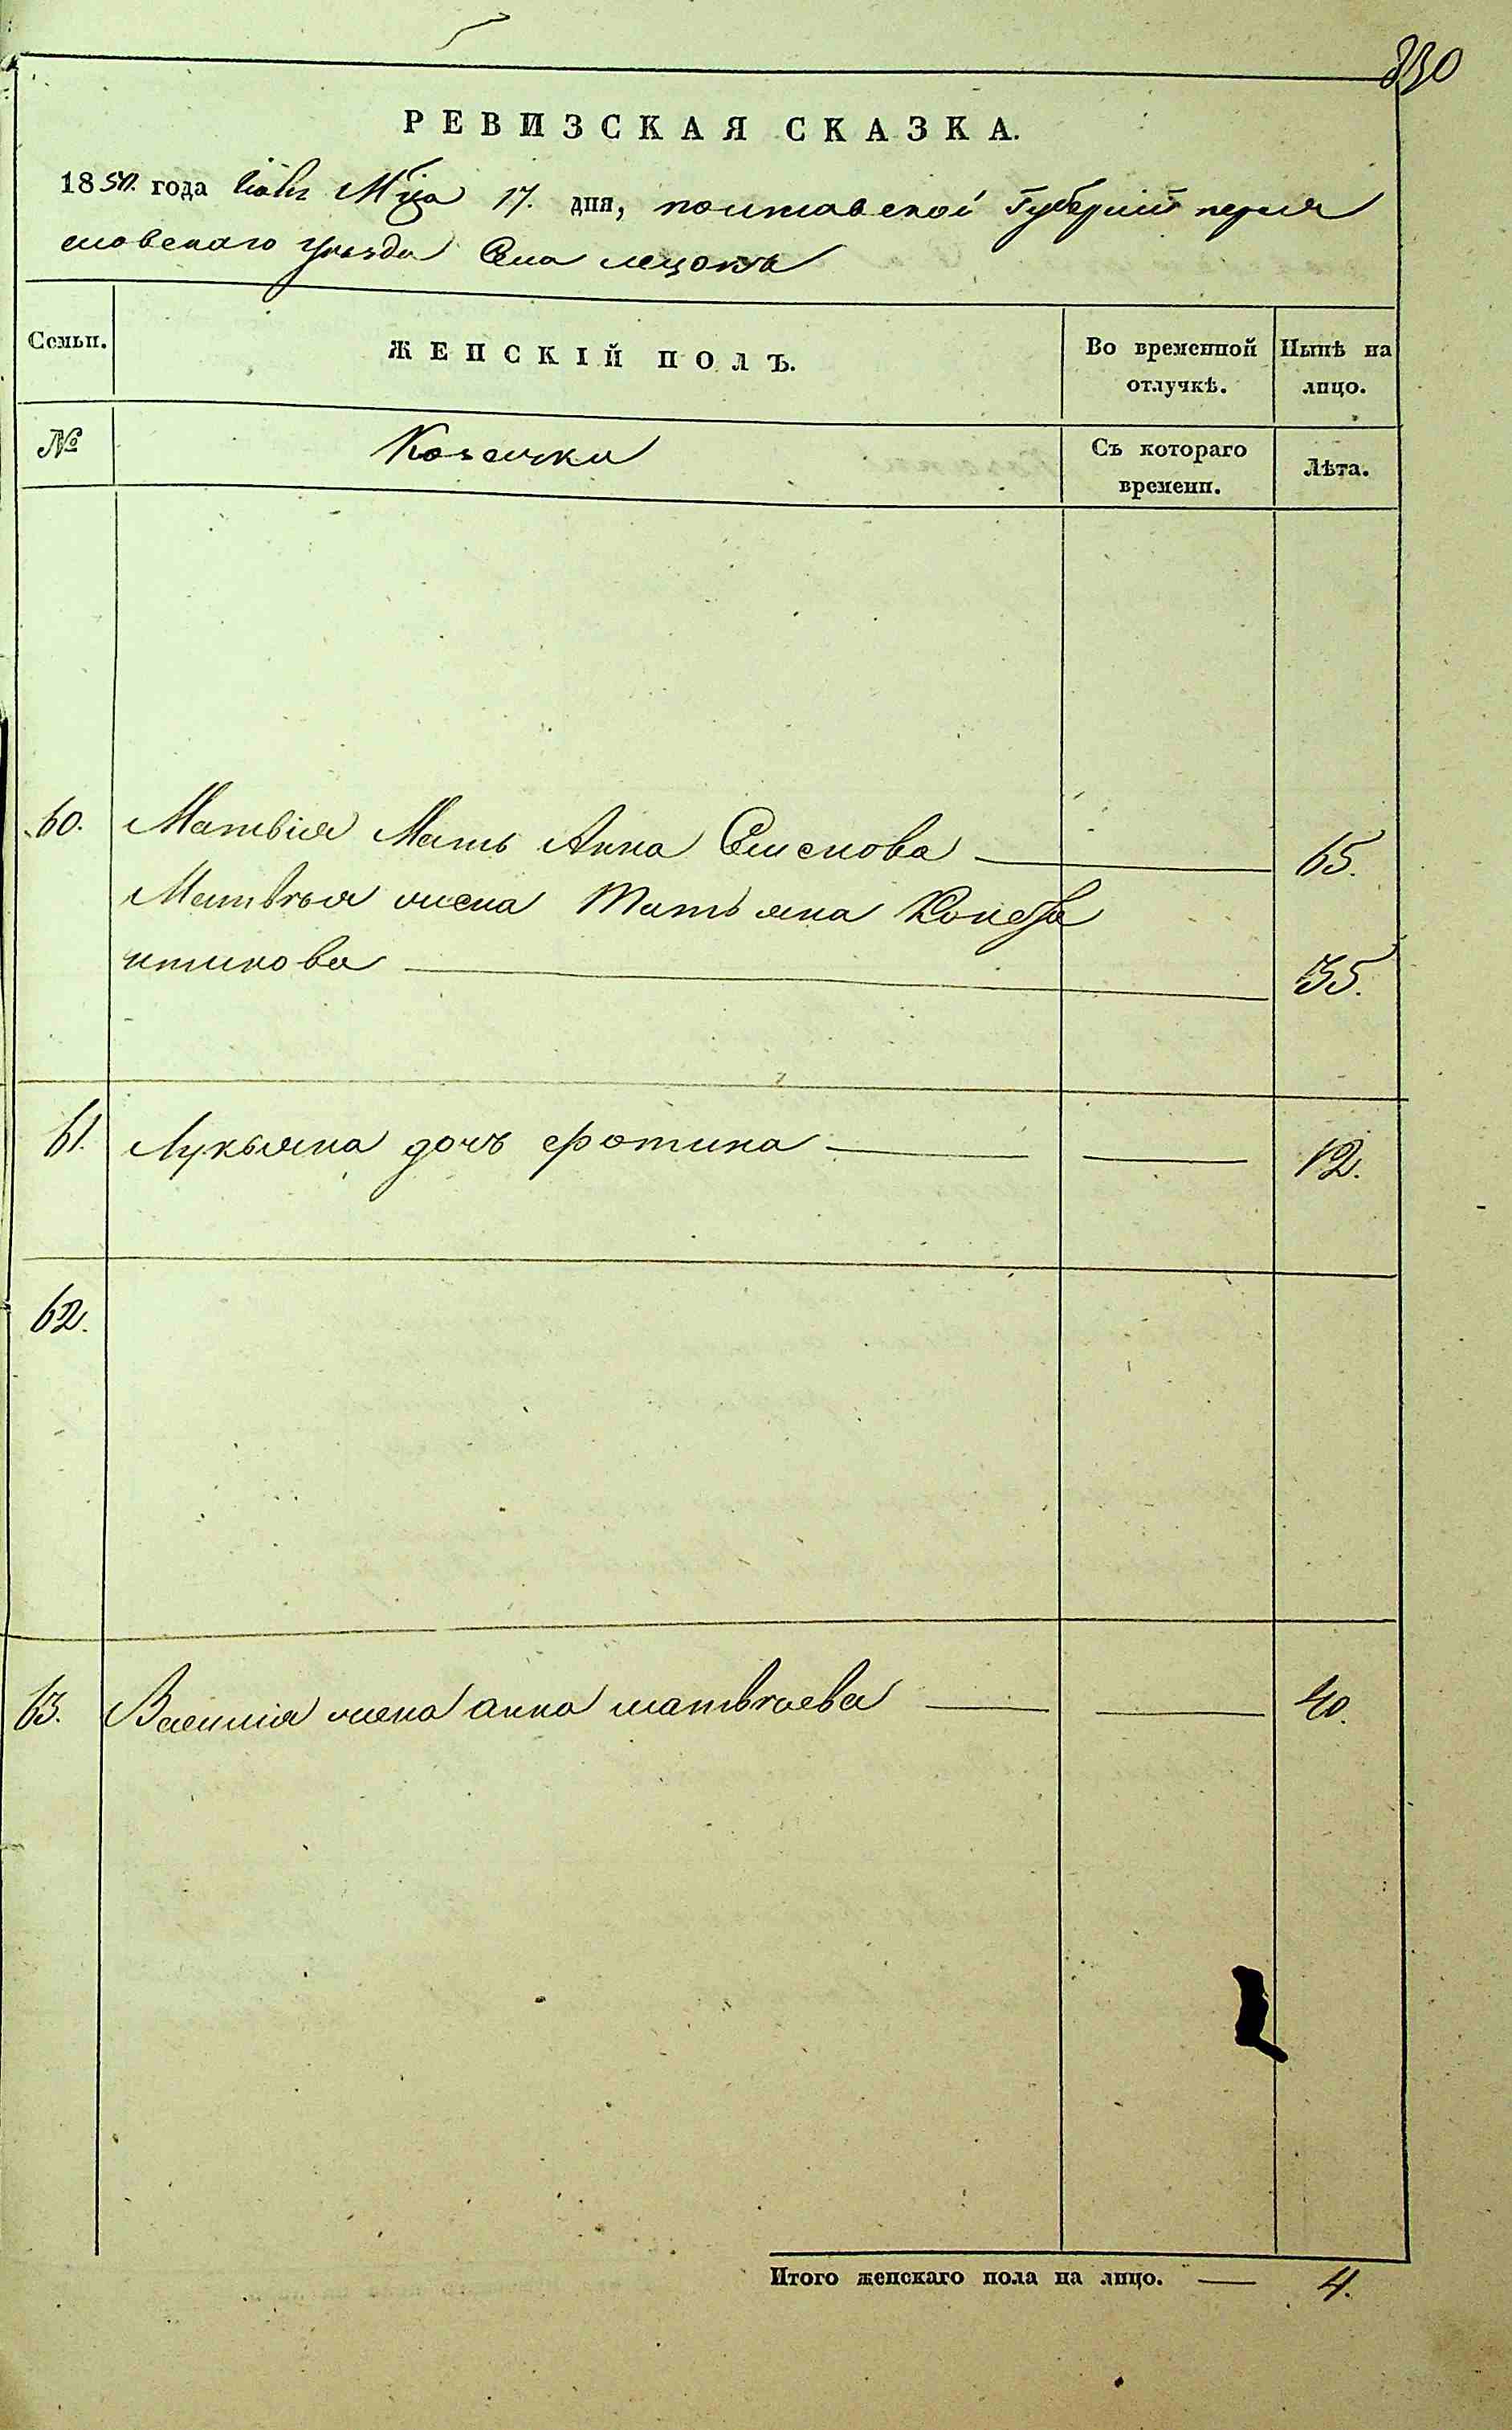 830
РЕВИЗСКАЯ СКАЗКА.
1850. года Мца 17. дня, полтавской Губерніи перея
словскаго уезда Села лецокъ
Семьи. ЖЕНСКІЙ ПОЛЪ. Во временной отлучкѣ. Нынѣ на лицо.
№ Козачки Съ котораго времени. Лѣта.
60. Матвія Мать Анна Семенова 65.
Матвѣя жена Татьяна Конста
нтинова 35.
61. Лукьяна дочь фотина 12.
62.
63. Василія жена анна матвѣева 40.
Итого женскаго пола на лицо. — 4.